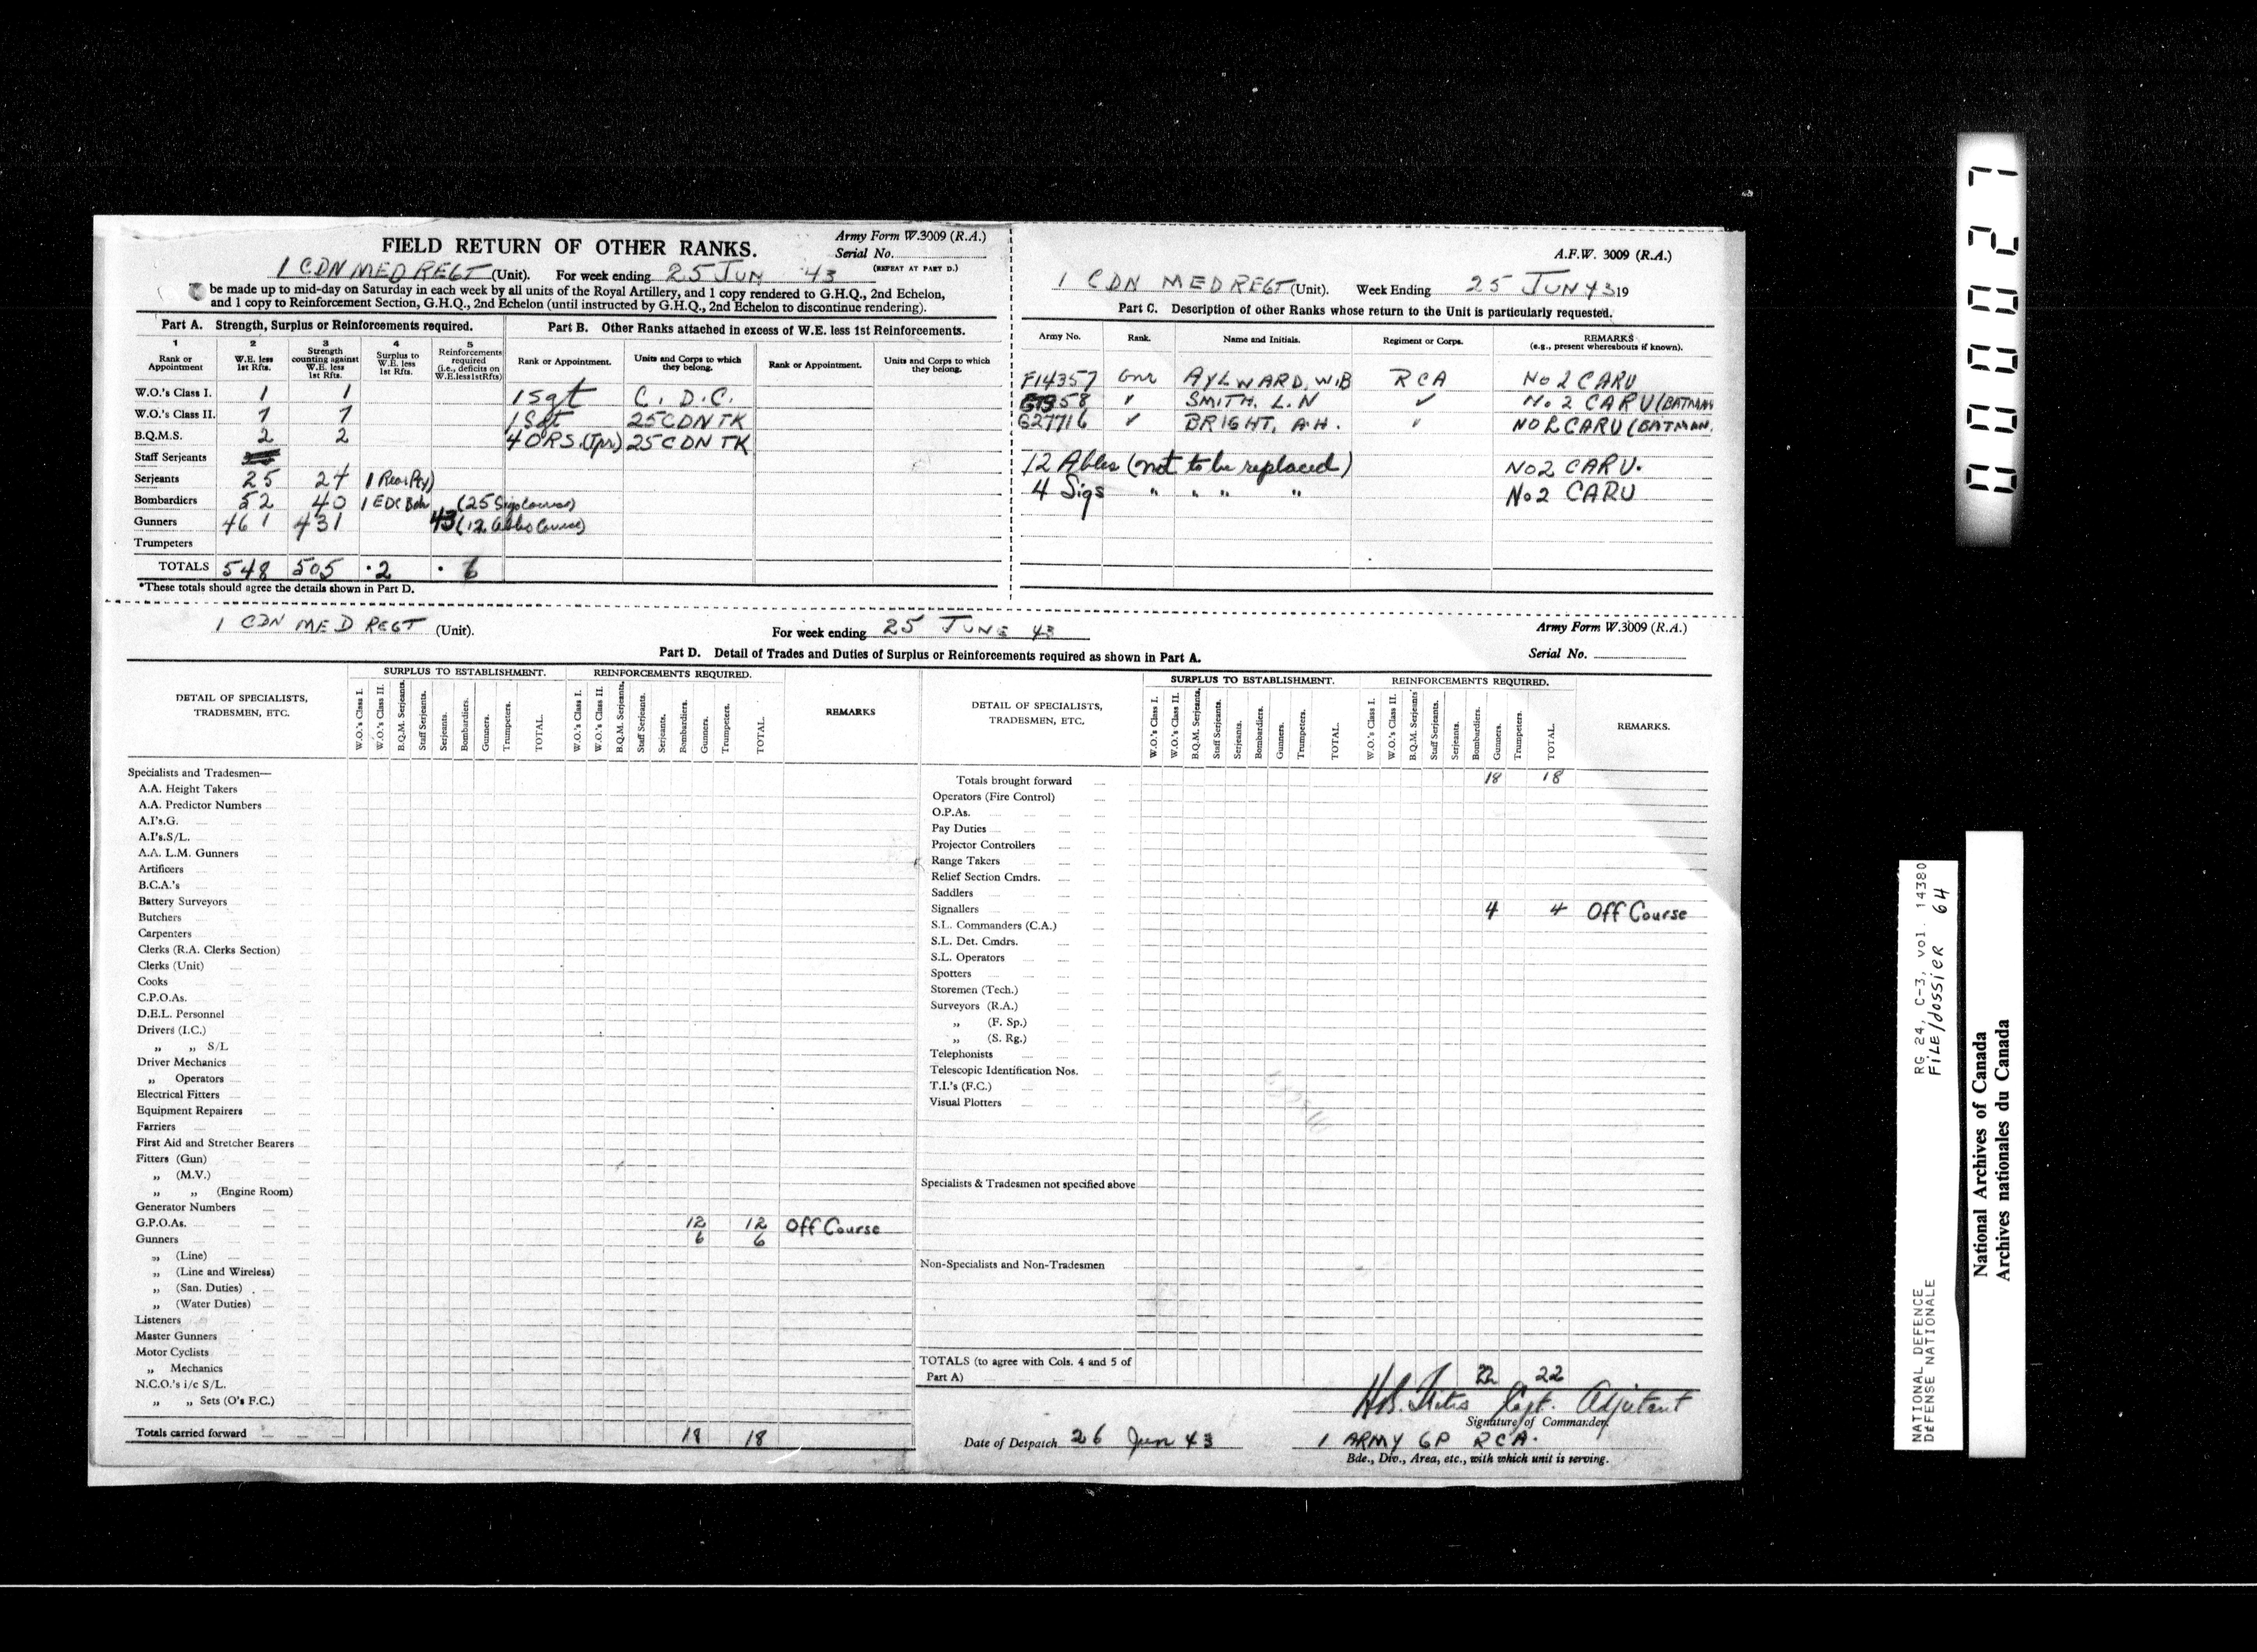 FIELD RETURN OF OTHER RANKS.
Army Form W.3009 (R.A.)
Serial No.
(REPEAT AT PART D.)
1 CDN MED REGT (Unit). For week ending 25 JUN 43
be made up to mid-day on Saturday in each week by all units of the Royal Artillery, and 1 copy rendered to G.H.Q., 2nd Echelon,
and 1 copy to Reinforcement Section, G.H.Q., 2nd Echelon (until instructed by G.H.Q., 2nd Echelon to discontinue rendering).
Part A. Strength, Surplus or Reinforcements required.
1 2 3 4 5
Rank or Appointment W.E. less 1st Rfts. Strength counting against W.E. less 1st Rfts. Surplus to W.E. less 1st Rfts. Reinforcements required (i.e., deficits on W.E. less 1st Rfts)
W.O.'s Class I. 1 1
W.O.'s Class II. 7 7
B.Q.M.S. 2 2
Staff Serjeants
Serjeants 25 24 1
Bombardiers 52 40 1 (25 Sigs Course)
Gunners 461 431 43 (12 Course)
Trumpeters
TOTALS 548 505 •2 • 6
*These totals should agree the details shown in Part D.
Part B. Other Ranks attached in excess of W.E. less 1st Reinforcements.
Rank or Appointment. Units and Corps to which they belong. Rank or Appointment. Units and Corps to which they belong.
1 Sgt C. D. C.
1 Sgt 25 CDN TK
4 ORS (Tprs) 25 CDN TK
A.F.W. 3009 (R.A.)
1 CDN MED REGT (Unit). Week Ending 25 JUN 43 19
Part C. Description of other Ranks whose return to the Unit is particularly requested.
Army No. Rank. Name and Initials. Regiment or Corps. REMARKS (e.g., present whereabouts if known).
F14357 Gnr AYLWARD, W.B RCA No 2 CARU
" SMITH, L.N " No. 2 CARU (BATMAN
G27716 " BRIGHT, A.H. " No 2 CARU (BATMAN.
12 (not to be replaced) No 2 CARU.
4 Sigs " " " " No 2 CARU
1 CDN MED REGT (Unit).
For week ending 25 JUNE 43
Army Form W.3009 (R.A.)
Serial No.
Part D. Detail of Trades and Duties of Surplus or Reinforcements required as shown in Part A.
DETAIL OF SPECIALISTS, TRADESMEN, ETC.
SURPLUS TO ESTABLISHMENT. REINFORCEMENTS REQUIRED.
W.O.'s Class I. W.O.'s Class II. B.Q.M. Serjeants. Staff Serjeants. Serjeants. Bombardiers. Gunners. Trumpeters. TOTAL. W.O.'s Class I. W.O.'s Class II. B.Q.M. Serjeants. Staff Serjeants. Serjeants. Bombardiers. Gunners. Trumpeters. TOTAL. REMARKS
Specialists and Tradesmen—
A.A. Height Takers
A.A. Predictor Numbers
A.I's.G.
A.I's.S/L.
A.A. L.M. Gunners
Artificers
B.C.A.'s
Battery Surveyors
Butchers
Carpenters
Clerks (R.A. Clerks Section)
Clerks (Unit)
Cooks
C.P.O.As.
D.E.L. Personnel
Drivers (I.C.)
„ „ S/L
Driver Mechanics
„ Operators
Electrical Fitters
Equipment Repairers
Farriers
First Aid and Stretcher Bearers
Fitters (Gun)
„ (M.V.)
„ „ (Engine Room)
Generator Numbers
G.P.O.As. 12 12 Off Course
Gunners 6 6
„ (Line)
„ (Line and Wireless)
„ (San. Duties)
„ (Water Duties)
Listeners
Master Gunners
Motor Cyclists
„ Mechanics
N.C.O.'s i/c S/L.
„ „ Sets (O's F.C.)
Totals carried forward 18 18
DETAIL OF SPECIALISTS, TRADESMEN, ETC.
SURPLUS TO ESTABLISHMENT. REINFORCEMENTS REQUIRED.
W.O.'s Class I. W.O.'s Class II. B.Q.M. Serjeants. Staff Serjeants. Serjeants. Bombardiers. Gunners. Trumpeters. TOTAL. W.O.'s Class I. W.O.'s Class II. B.Q.M. Serjeants Staff Serjeants. Serjeants. Bombardiers. Gunners. Trumpeters. TOTAL. REMARKS.
Totals brought forward 18 18
Operators (Fire Control)
O.P.As.
Pay Duties
Projector Controllers
Range Takers
Relief Section Cmdrs.
Saddlers
Signallers 4 4 Off Course
S.L. Commanders (C.A.)
S.L. Det. Cmdrs.
S.L. Operators
Spotters
Storemen (Tech.)
Surveyors (R.A.)
„ (F. Sp.)
„ (S. Rg.)
Telephonists
Telescopic Identification Nos.
T.I.'s (F.C.)
Visual Plotters
Specialists & Tradesmen not specified above
Non-Specialists and Non-Tradesmen
TOTALS (to agree with Cols. 4 and 5 of Part A) 22 22
Capt. Adjutant
Signature of Commander.
Date of Despatch 26 Jun 43
1 ARMY GP RCA.
Bde., Div., Area, etc., with which unit is serving.
000027
NATIONAL DEFENCE RG 24, C-3, vol. 14380
DEFENSE NATIONALE FILE/dossier 64
National Archives of Canada
Archives nationales du Canada